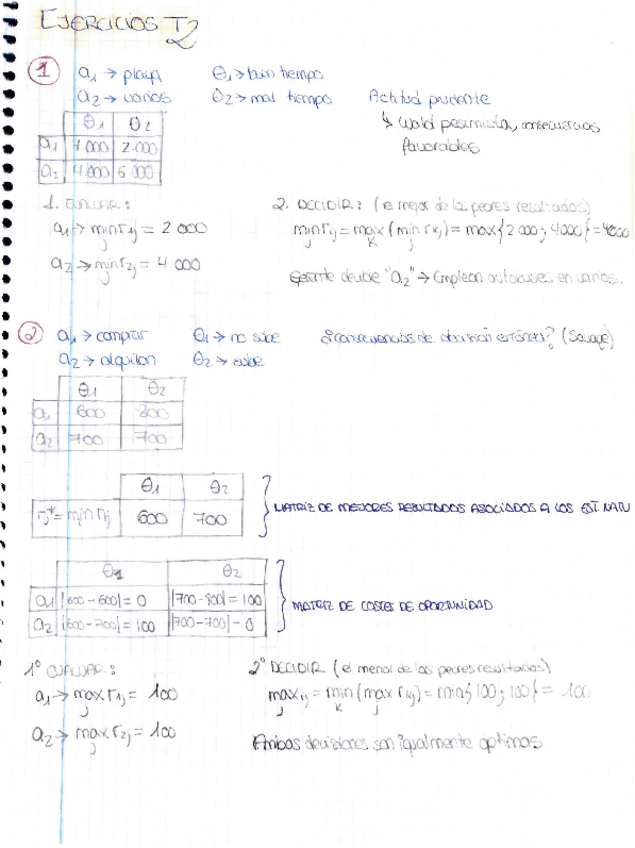 EJERCICIOS T2
1 a1 → playa θ1 → buen tiempo
a2 → varios θ2 → mal tiempo Actitud prudente
↳ Wald pesimista, consecuencias
favorables
θ1 θ2
a1 7 000 2 000
a2 4 000 6 000
1. EVALUAR: 2. DECIDIR: (el mejor de los peores resultados)
a1 → min r1j = 2 000 min rij = max (min rkj) = max{2 000; 4000} = 4000
j j k j
a2 → min r2j = 4 000
j Gerente decide "a2" → Emplean autobuses en varios.
2 a1 → comprar θ1 → no sube ¿Consecuencias de decisión errónea? (Savage)
a2 → alquilan θ2 → sube
θ1 θ2
a1 600 800
a2 700 700
θ1 θ2
rj* = min rij 600 700 MATRIZ DE MEJORES RESULTADOS ASOCIADOS A LOS EST. NATU
θ1 θ2
a1 |600-600| = 0 |700-800| = 100
a2 |600-700| = 100 |700-700| = 0
MATRIZ DE COSTES DE OPORTUNIDAD
1º EVALUAR: 2º DECIDIR (el menor de los peores resultados)
a1 → max r1j = 100 max ij = min (max rkj) = min{100; 100} = 100
j j k j
a2 → max r2j = 100
j Ambas decisiones son igualmente óptimas